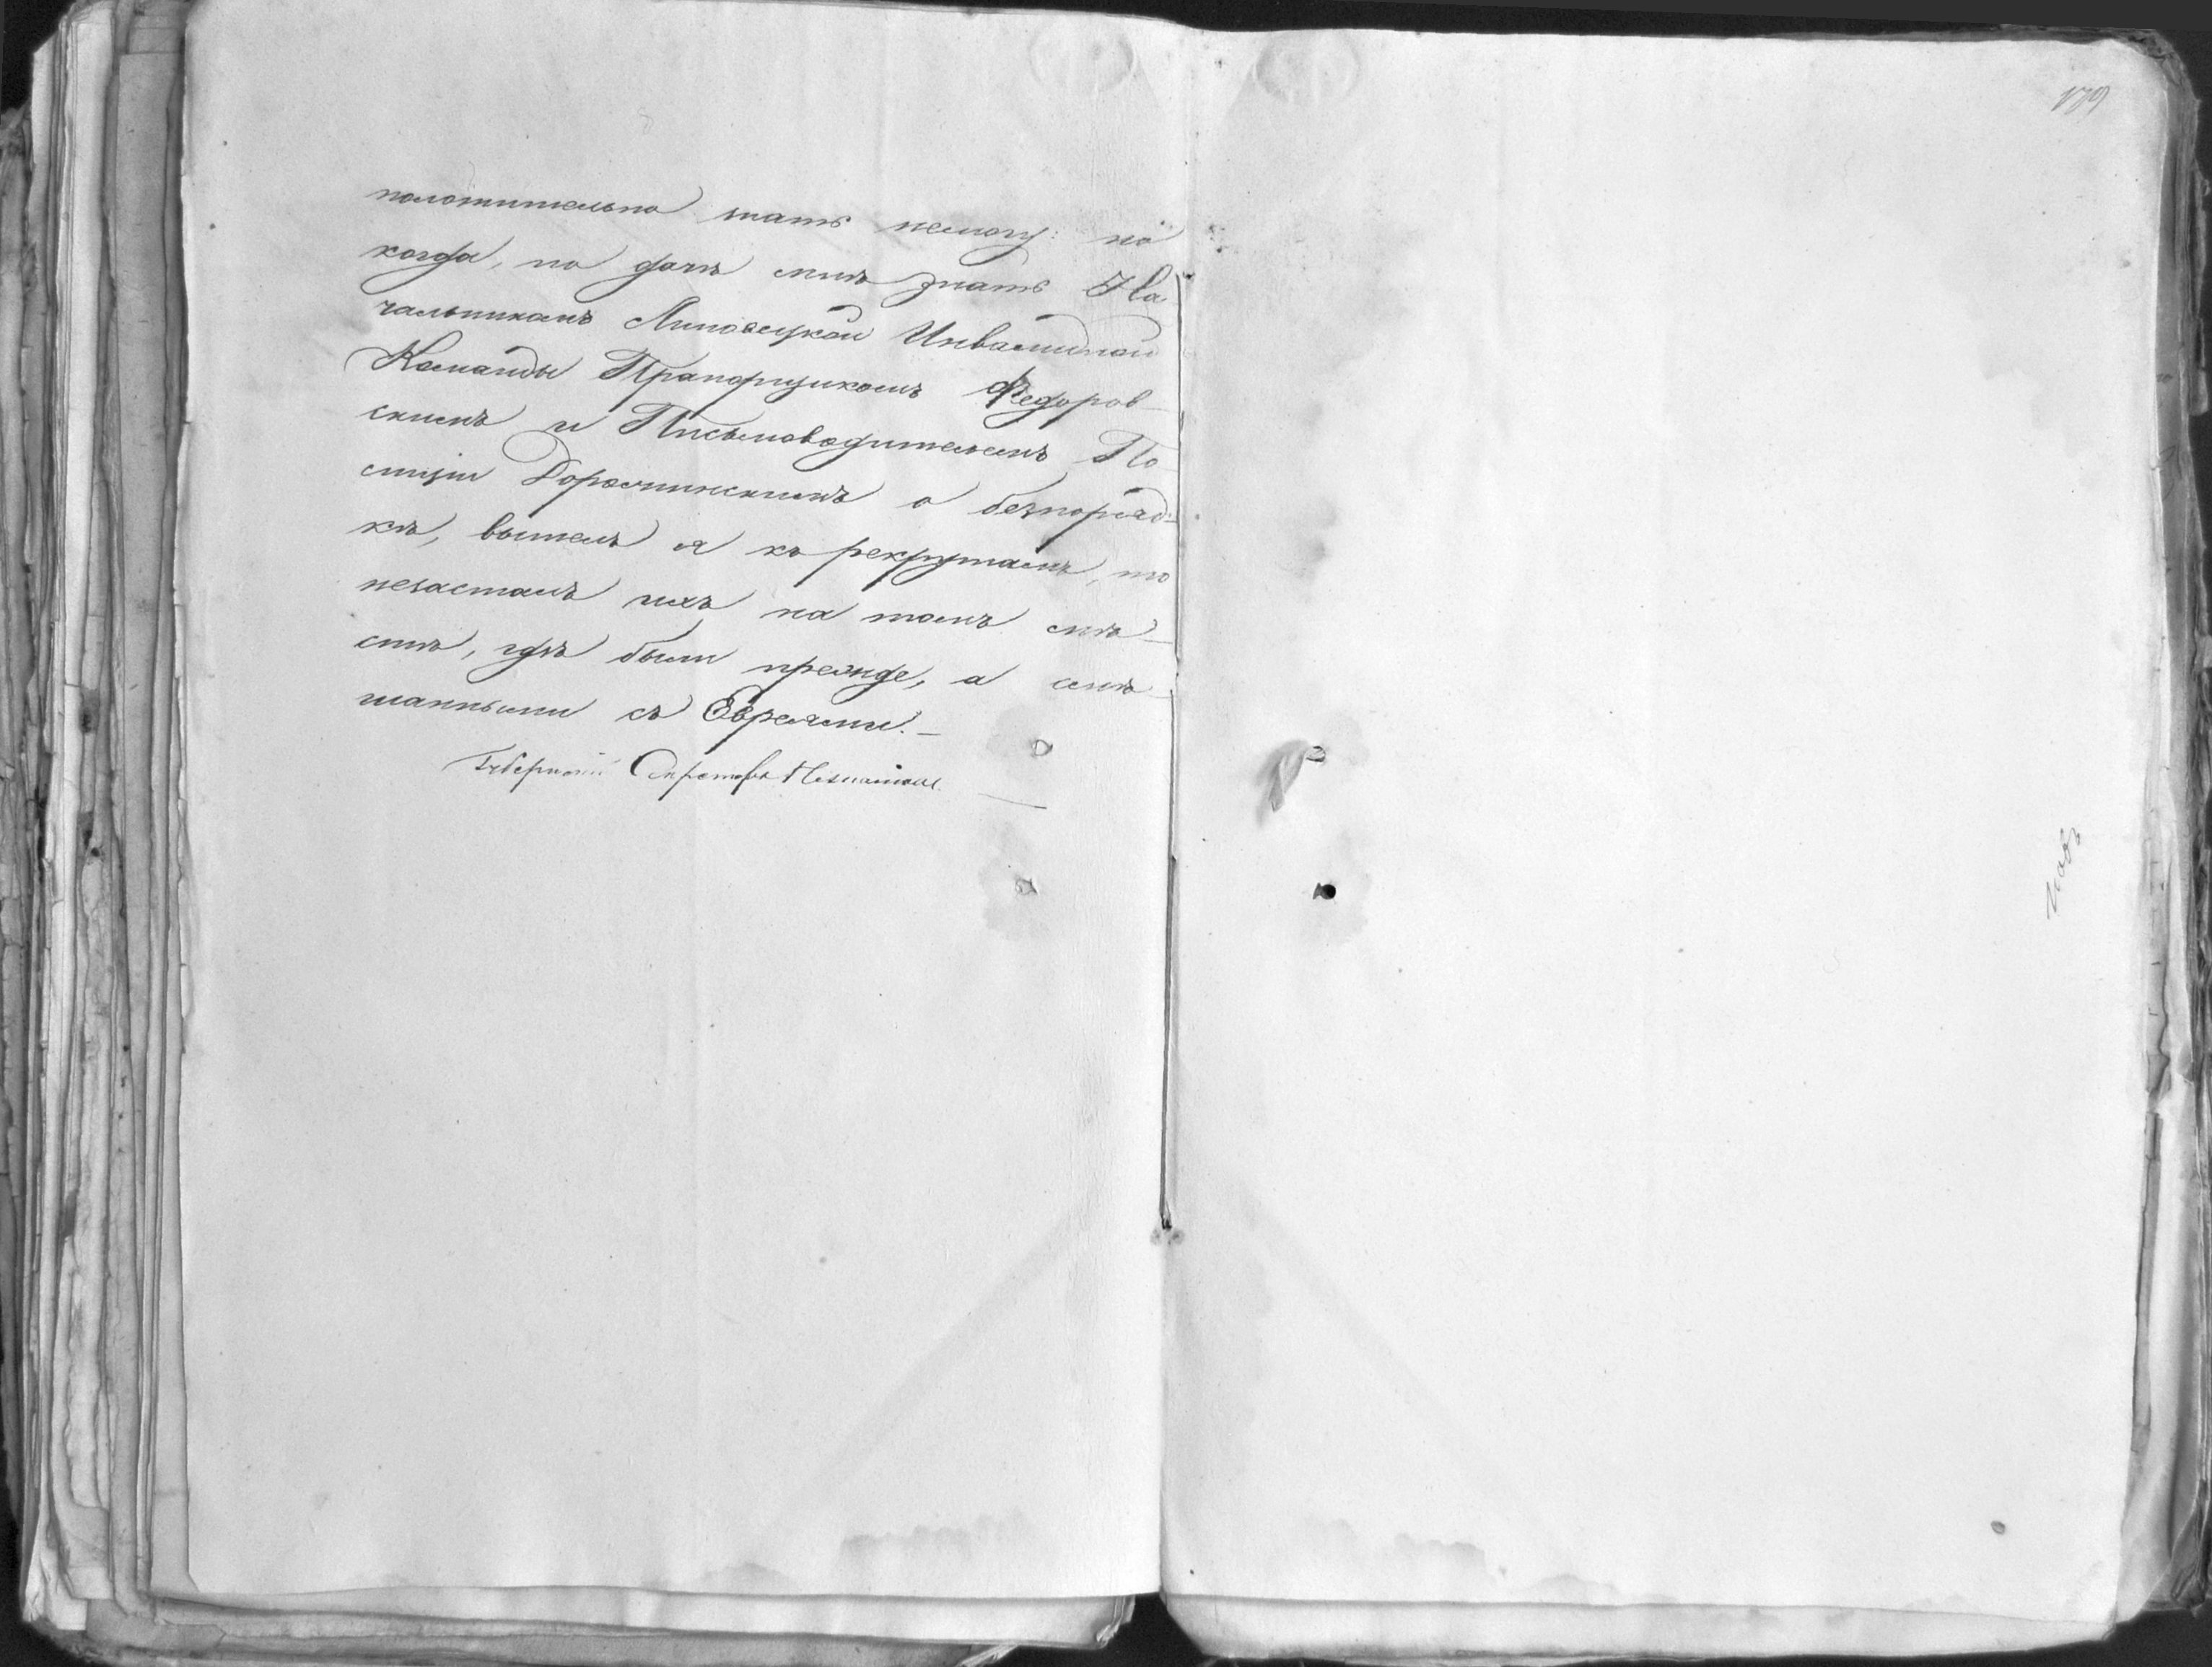 положительно знать немогу: но
когда, по дачѣ мнѣ знать На
чальникомъ Липовецкой Инвалидной
Команды Прапорщикомъ Федоров-
скимъ и Письмоводителемъ По-
лиціи Дорожинскимъ о безпоряд-
кѣ, вышелъ я къ рекрутамъ, то
незасталъ ихъ на томъ мѣ-
стѣ, гдѣ были прежде, а смѣ-
шанными съ Евреями.-
Губернскій Секретарь
179